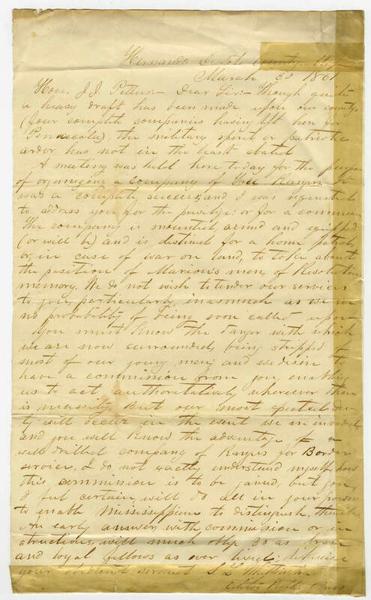 Hernando De Soto County Miss
March 30 1861
Hon. J.J. Pettus - Dear Sir - Though quite
a heavy draft has been made upon our county
(four complete companies having left here for
Pensacola) the military spirit or patriotic
ardor has not in the least abated
A meeting was held here today for the purpose
of organizing a Company of
was a complete success, and I was
to address you for the privilege or for a commission
The company is mounted, armed and equipped
(or will be) and is distinct for a home patrol
or in case of war on land, to take about
the position of Marion's men of Revolutionary
memory. We do not wish to tender our services
to you particularly inasmuch as we
no probability of being soon called upon
You must know the danger with which
we are now surrounded, being stripped of
most of our young men, and we desire to
have a commission from you enabling
us to act authoritatively wherever there
is necessity. But our most
will occur in the event we are invaded
and you will know the advantage of a
well drilled company of Rangers for Border
service. I do not exactly understand myself how
this commission is to be gained, but you
I feel certain will do all in your power
to enable Mississippians to distinguish
An early answer with commission or in
structions, will much oblige 30 as brave
and loyal fellows as ever lived
your obedient servant